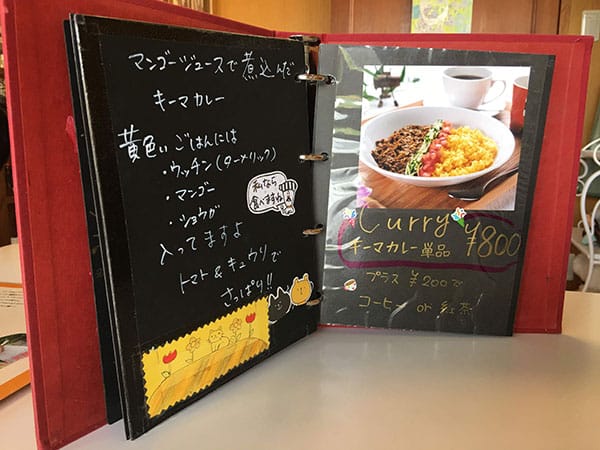 マンゴージュースで煮込んだ
キーマカレー
黄色いごはんには
・ウッチン(ターメリック)
・マンゴー
・ショウガ
入ってますよ
トマト&キュウリで
さっぱり!!
私なら
食べますね
Curry
キーマカレー単品 ¥800
プラス ¥200で
コーヒー or 紅茶